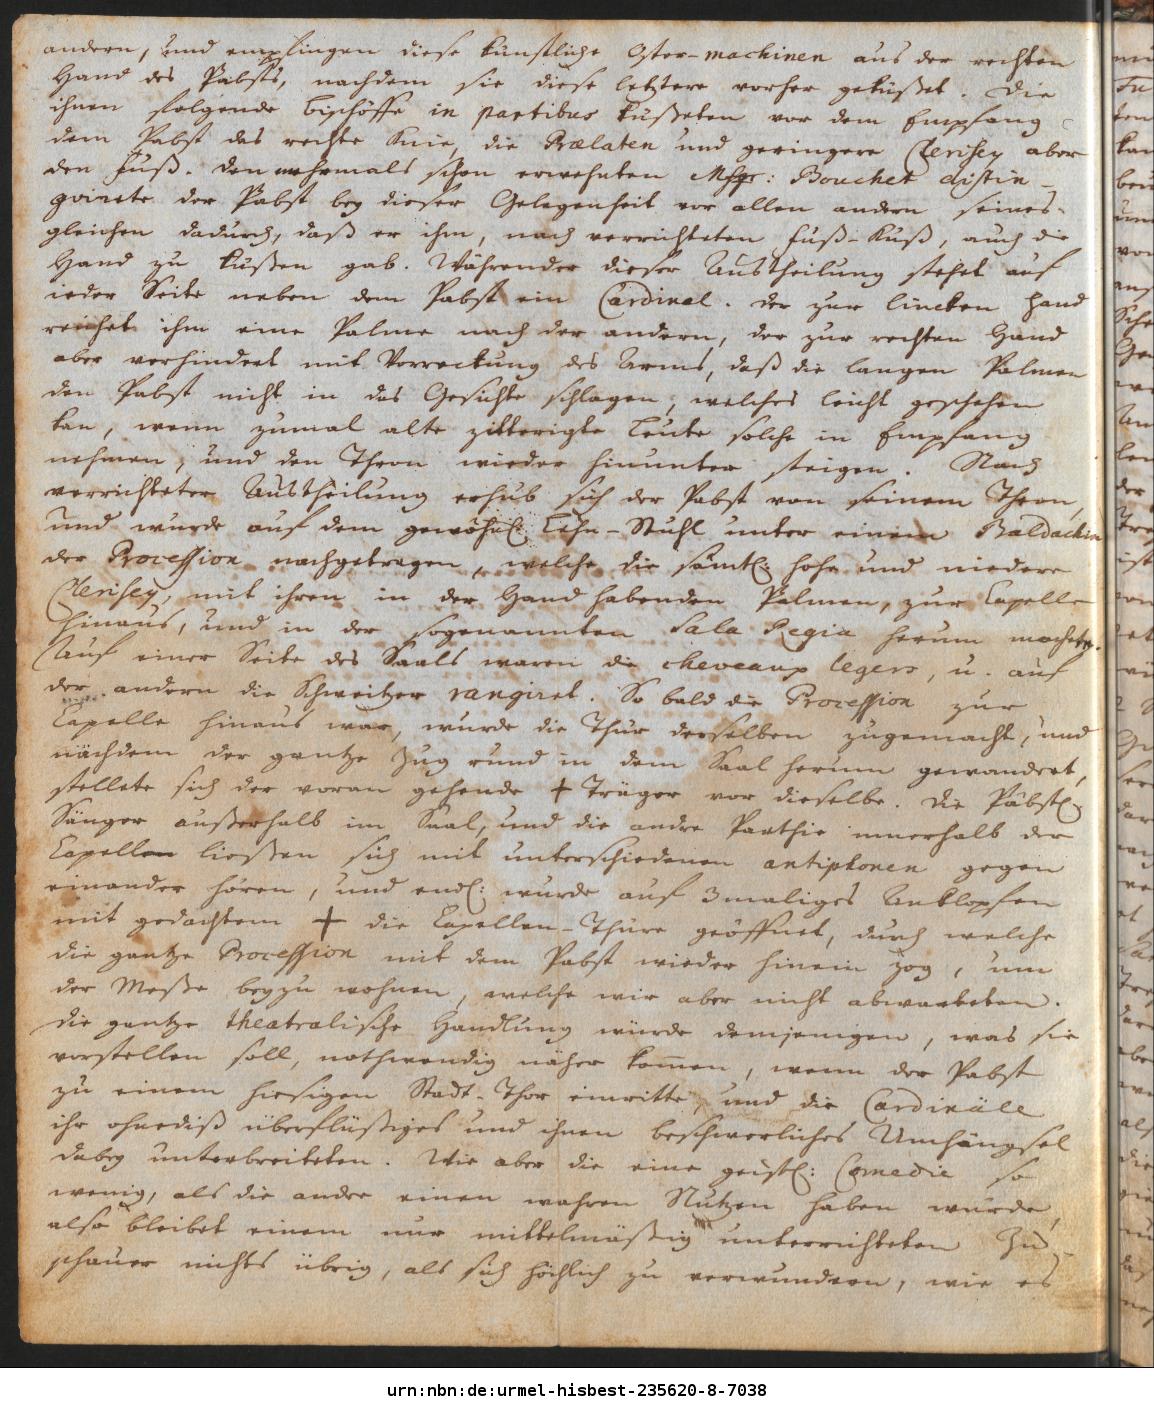 andern, und empfingen diese künstliche Oster-machinen aus der rechten
Hand des Pabsts, nachdem sie diese letztere vorher geküßet. Die
ihnen folgende Bischöffe in partibus küßeten vor dem Empfang
dem Pabst das rechte Knie, die Prælaten und geringere Clerisey aber
den Fuß. Den mehrmals schon erwehnten Msgr: Bouchet distin-
guirete der Pabst bey dieser Gelegenheit vor allen andern seines-
gleichen dadurch, daß er ihm, nach verrichteten Fuß-Kuß, auch die
Hand zu küßen gab. Währender dieser Austheilung stehet auf
ieder Seite neben dem Pabst ein Cardinal. Der zur lincken Hand
reichet ihm eine Palme nach der andern, der zur rechten Hand
aber verhindert mit Vorreckung des Arms, daß die langen Palmen
den Pabst nicht in das Gesichte schlagen, welches leicht geschehen
kan, wenn zumal alte zitterigte Leute solche in Empfang
nehmen, und den Thron wieder hinunter steigen. Nach
verrichteter Austheilung erhub sich der Pabst von seinem Thron,
und wurde auf dem gewöhnl: Lehn-Stuhl unter einem Baldachin
der Procession nachgetragen, welche die sämtl: hohe und niedere
Clerisey, mit ihren in der Hand habenden Palmen, zur Capelle
hinaus, und in der sogenannten Sala Regia herum machete.
Auf einer Seite des Saals waren die cheveaux legers, u. auf
der andern die Schweitzer rangiret. So bald die Procession zur
Capelle hinaus war, wurde die Thür derselben zugemacht, und
nachdem der gantze Zug rund in dem Saal herum gewandert,
stellete sich der voran gehende + Träger vor dieselbe. Die Päbstl:
Sänger außerhalb im Saal, und die andre Parthie innerhalb der
Capellen ließen sich mit unterschiedenen antiphonen gegen
einander hören, und endl: wurde auf 3maliges Anklopfen
mit gedachtem + die Capellen-Thüre geöffnet, durch welche
die gantze Procession mit dem Pabst wieder hinein zog, um
der Meße beyzu wohnen, welche wir aber nicht abwarteten.
Die gantze theatralische Handlung würde demjenigen, was sie
vorstellen soll, nothwendig näher kom̄en, wenn der Pabst
zu einem hiesigen Stadt-Thor einritte, und die Cardinäle
ihr ohnediß überflüßiges und ihnen beschwerliches Umhängsel
dabey unterbreiteten. Wie aber die eine geistl: Comedie so
wenig, als die andre einen wahren Nutzen haben würde,
also bleibet einem nur mittelmäßig unterrichteten Zu-
schauer nichts übrig, als sich höchlich zu verwundern, wie es
urn:nbn:de:urmel-hisbest-235620-8-7038